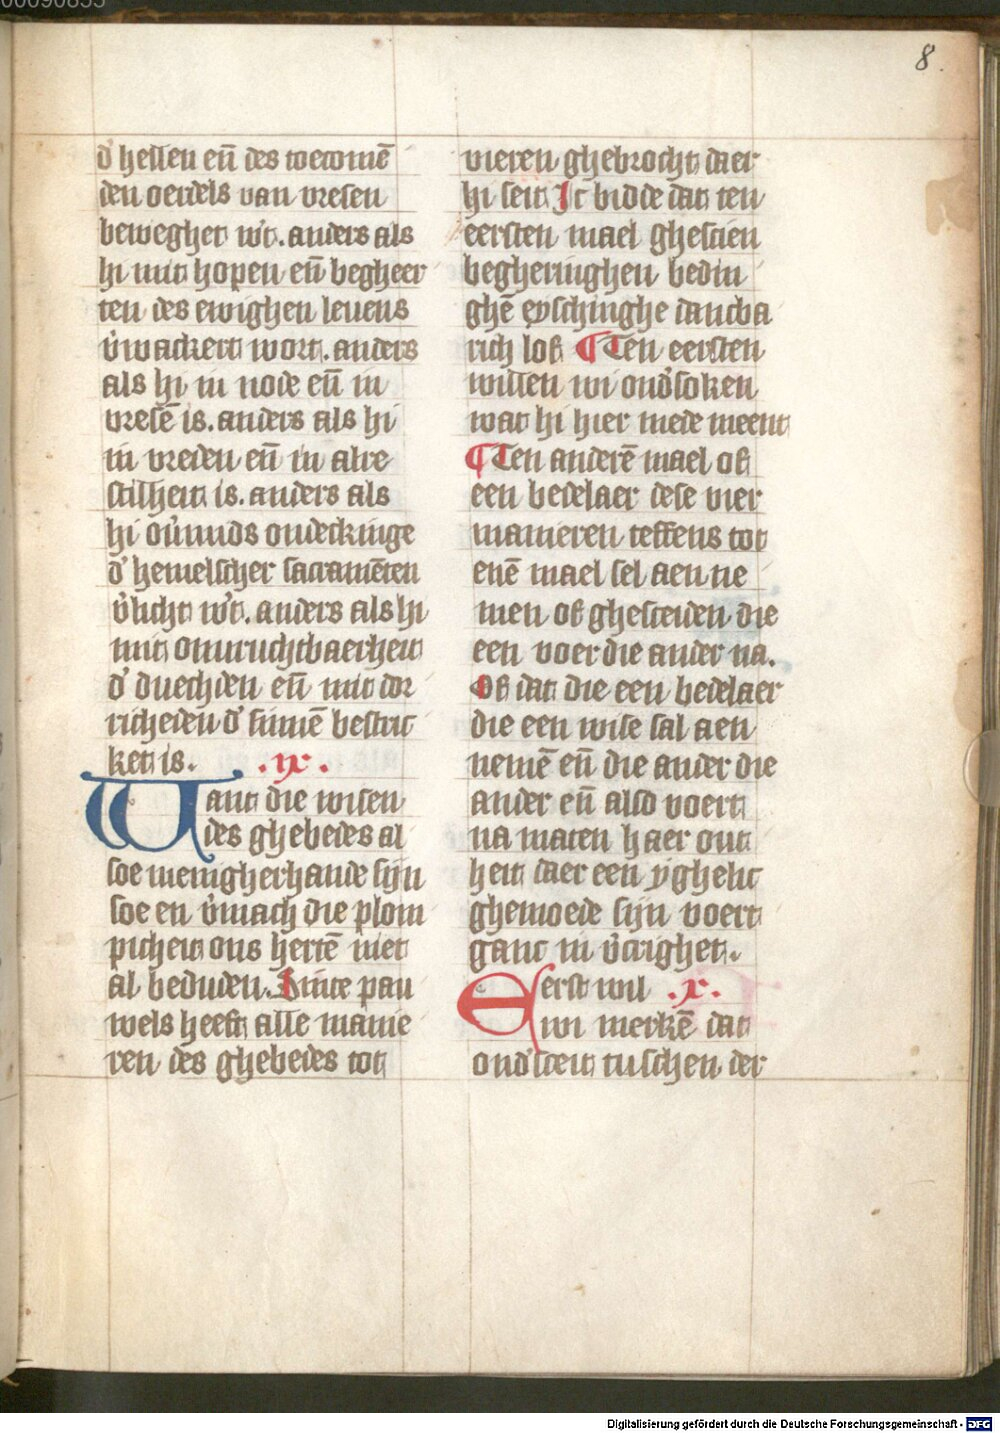 8.
d' hellen en̄ des toecomē
den oerdels van vresen
beweghet wt'. anders als
hi mit hopen en̄ begheer
ten des ewighen leuens
v'wackert wort. anders
als hi in node en̄ in
vresē is. anders als hi
in vreden en̄ in alre
stilheit is. anders als
hi ou'mids ondeckinge
d' hemelscher sacramēten
v'licht wt'. anders als hi
mit onuruchtbaerheit
d' duechden en̄ mit dor
richeden d' sinnē bestric
ket is. .ix.
Want die wisen
des ghebedes al
soe menigherhande sijn
soe en v'mach die plom
picheit ons hertē niet
al beduden. Sinte pau
wels heeft alle manie
ren des ghebedes tot
vieren ghebrocht daer
hi seit Ic bidde dat ten
eersten mael ghescien
begheringhen bedin
ghē eyschinghe dancba
rich lof ¶ Ten eersten
willen wi ond'soken
wat hi hier mede meent
¶ Ten anderē mael of
een bedelaer dese vier
manieren teffens tot
enē mael sel aen ne
men of ghesceiden die
een voer die ander na.
Of dat die een bedelaer
die een wise sal aen
nemē en̄ die ander die
ander en̄ also voert
na maten haer out
heit daer een yghelic
ghemoede sijn voert
ganc in v'crighet.
Eerst wil .x.
wi merkē dat
ond'sceit tuschen der
Digitalisierung gefördert durch die Deutsche Forschungsgemeinschaft - DFG